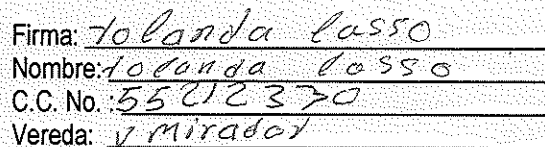 Firma: Yolanda lasso
Nombre: Yolanda lasso
C.C. No. : 55212370
Vereda: v mirador